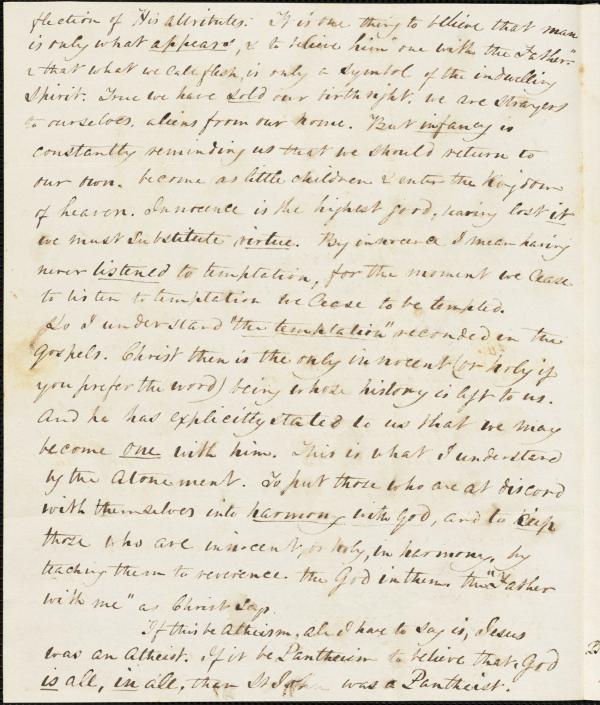 flection of His attributes. It is one thing to believe that man
is only what appears, & to believe him "one with the Father"
& that what we call flesh is only a symbol of the indwelling
Spirit. True we have sold our birthright. we are strangers
to ourselves. aliens from our home. But infancy is
constantly reminding us that we should return to
our own. become as little children & enter the Kingdom
of heaven. Innocence is the highest good, having lost it
we must substitute virtue. By innocence I mean having
never listened to temptation, for the moment we cease
to listen to temptation we cease to be tempted.
So I understand "the temptation" recorded in the
Gospels. Christ then is the only innocent (or holy if
you prefer the word) being whose history is left to us.
And he has explicitly stated to us that we may
become one with him. This is what I understand
by the Atonement. To put those who are at discord
with themselves into harmony with God, and to keep
those who are innocent, or holy, in harmony, by
teaching them to reverence. the God in them. the "Father
with me" as Christ says.
If this be Atheism, all I have to say is, Jesus
was an Atheist. If it be Pantheism to believe that God
is all, in all, then St John was a Pantheist.